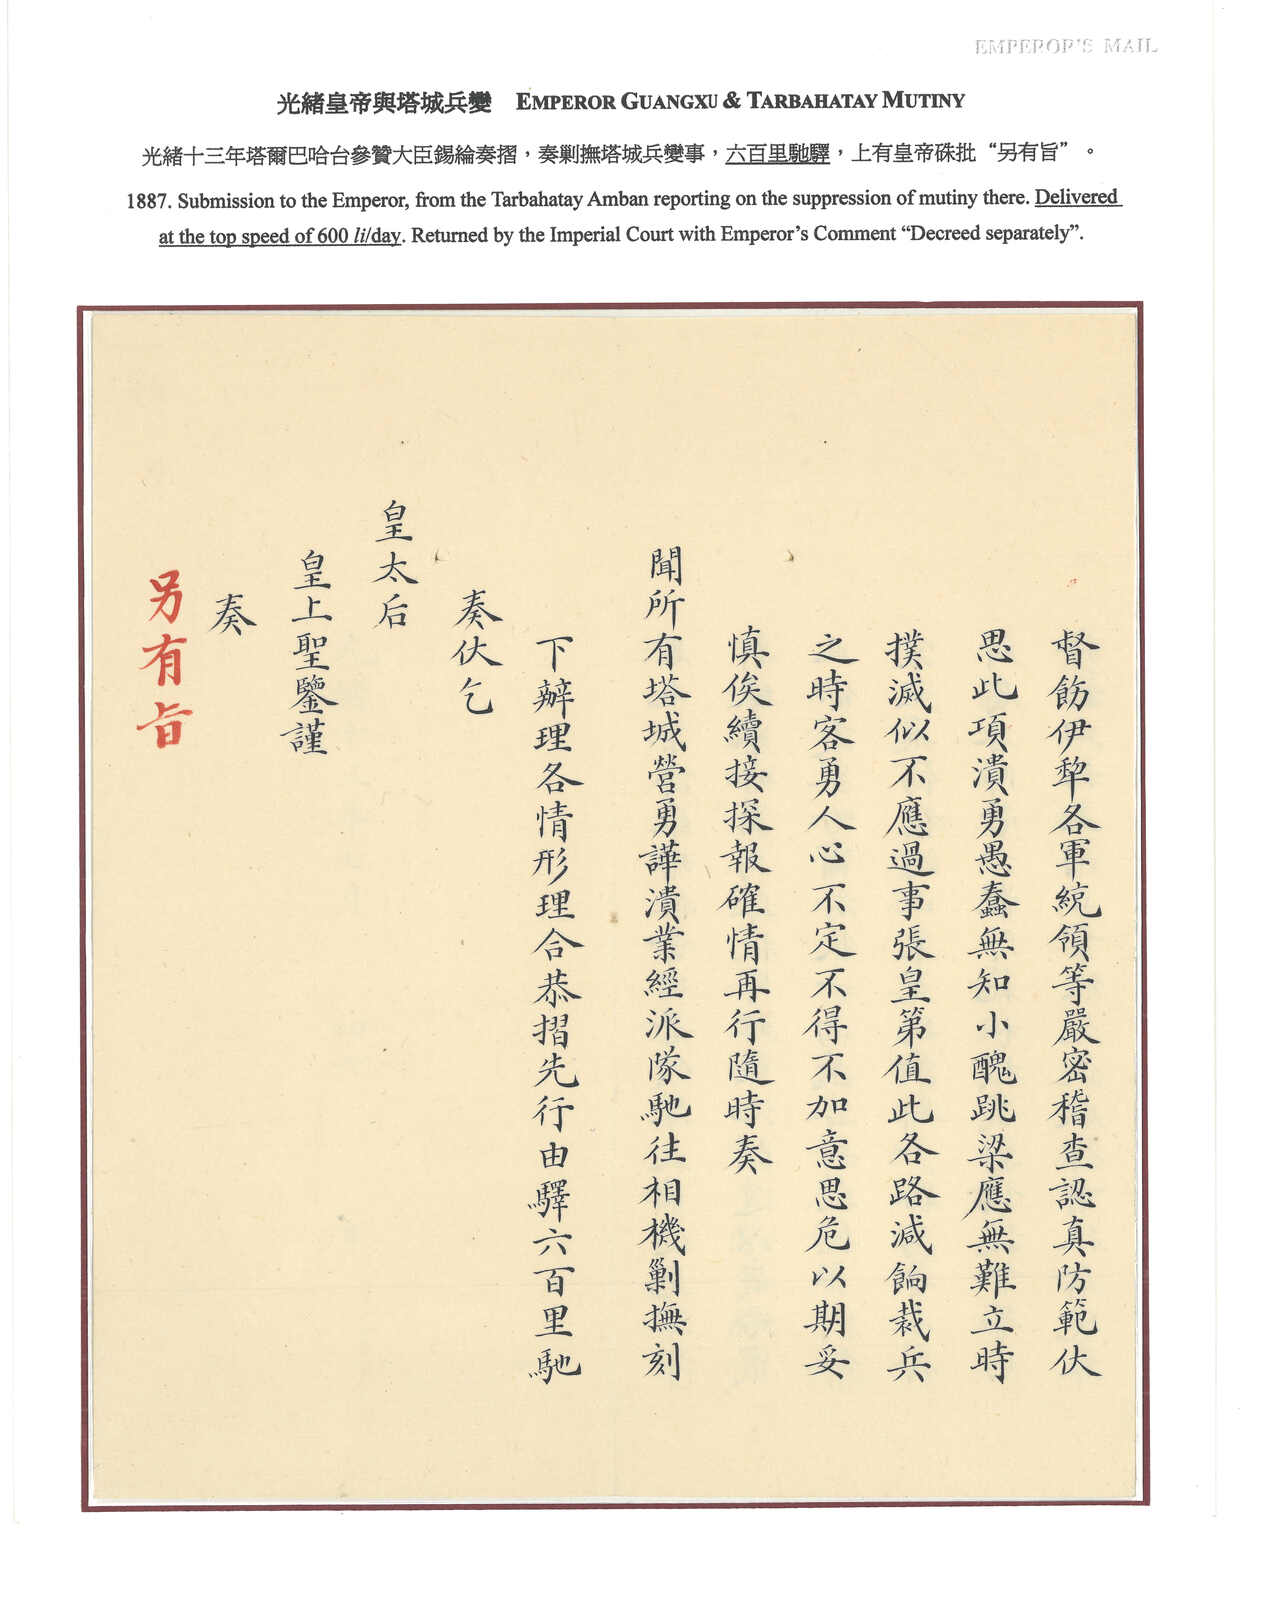 EMPEROR'S MAIL
光緒皇帝與塔城兵變 EMPEROR GUANGXU & TARBAHATAY MUTINY
光緒十三年塔爾巴哈台參贊大臣錫綸奏摺，奏剿撫塔城兵變事，六百里馳驛，上有皇帝硃批“另有旨”。
1887. Submission to the Emperor, from the Tarbahatay Amban reporting on the suppression of mutiny there. Delivered
at the top speed of 600 li/day. Returned by the Imperial Court with Emperor's Comment “Decreed separately”.
督飭伊犂各軍統領等嚴密稽查認真防範伏
思此項潰勇愚蠢無知小醜跳梁應無難立時
撲滅似不應過事張皇第值此各路減餉裁兵
之時客勇人心不定不得不加意思危以期妥
慎俟續接探報確情再行隨時奏
聞所有塔城營勇譁潰業經派隊馳往相機剿撫刻
下辦理各情形理合恭摺先行由驛六百里馳
奏伏乞
皇太后
皇上聖鑒謹
奏
另有旨